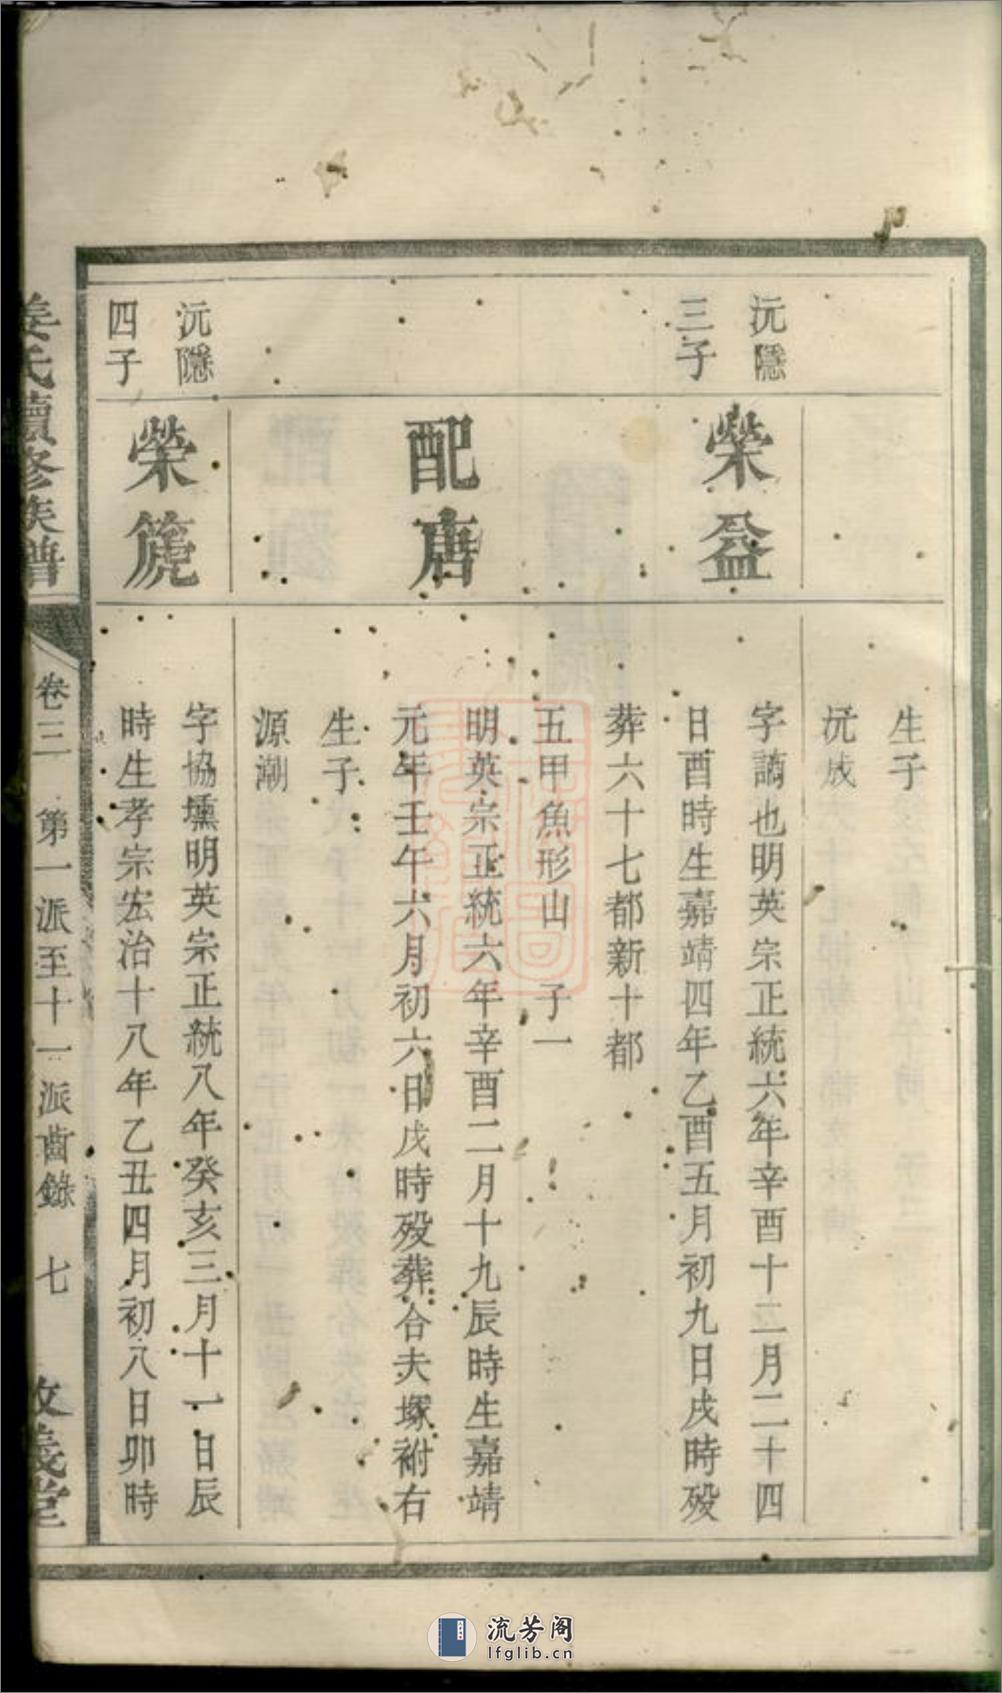 生子
沅成
沅隱
三子
榮益
字謫也明英宗正統六年辛酉十二月二十四
日酉時生嘉靖四年乙酉五月初九日戌時歿
葬六十七都新十都
五甲魚形山 子一
配唐
明英宗正統六年辛酉二月十九辰時生嘉靖
元年壬午六月初六日戌時歿葬合夫塚祔右
生子
源潮
沅隱
四子
榮篪
字協壎明英宗正統八年癸亥三月十一日辰
時生孝宗宏治十八年乙丑四月初八日卯時
姜氏續修族譜
卷三 第一派至十一派齒錄 七
敦義堂
流芳阁
lfglib.cn